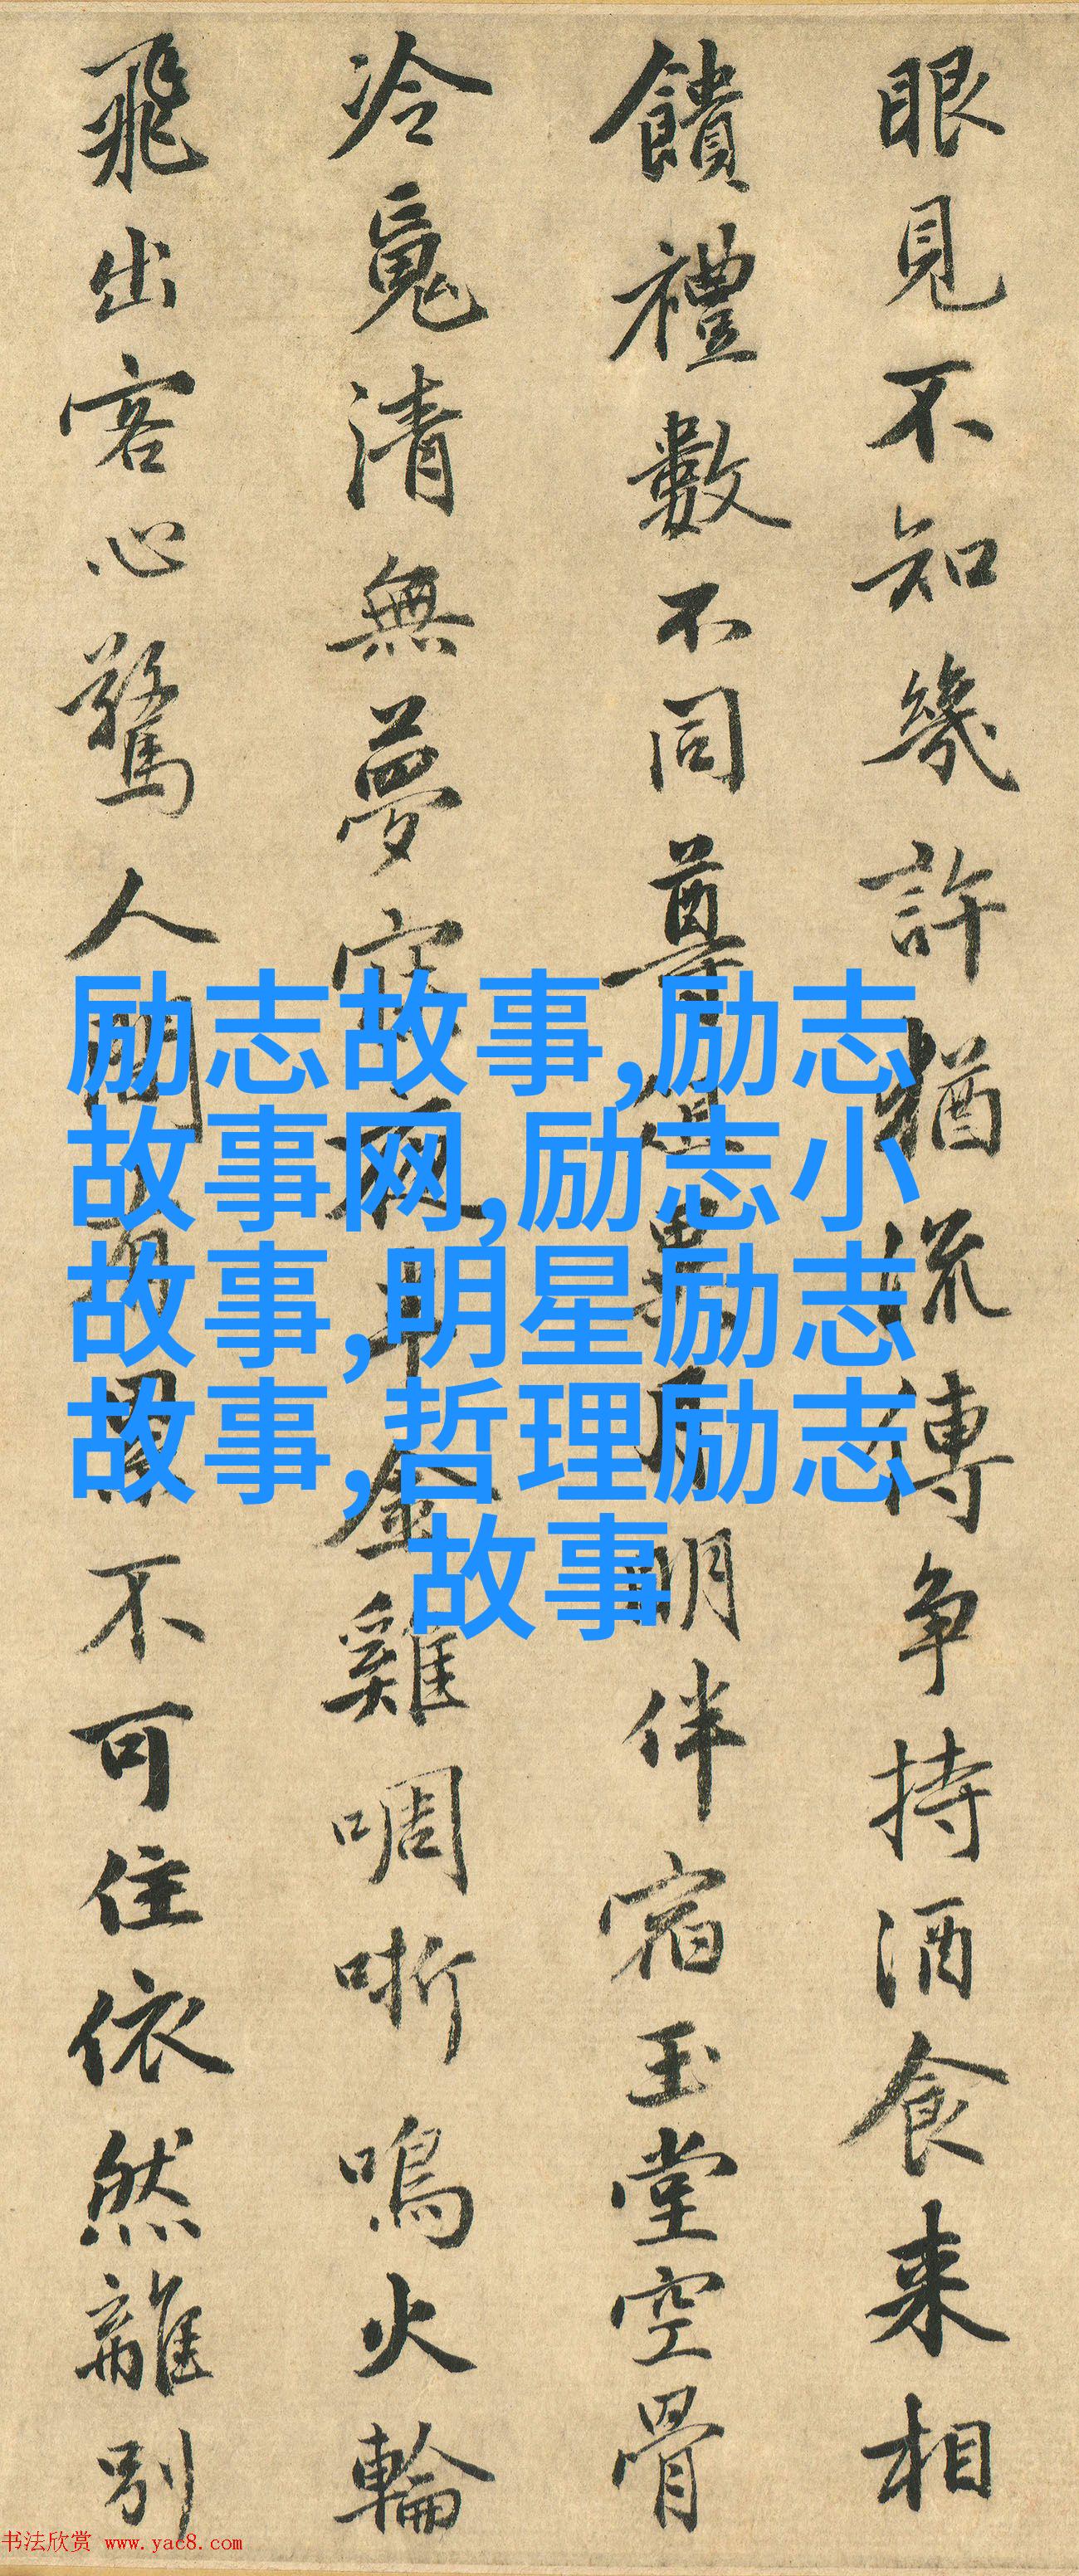 眼見不知幾許猶流傳争持酒食来相
饋禮數不同尊異月明伴宿玉堂空骨
冷魂清無夢寐夜半金雞啁哳鳴火輪
飛出客心驚人間有累不可住依然離別
励志故事,励志
故事网,励志小
故事,明星励志
故事,哲理励志
故事
书法欣赏 www.yac8.com